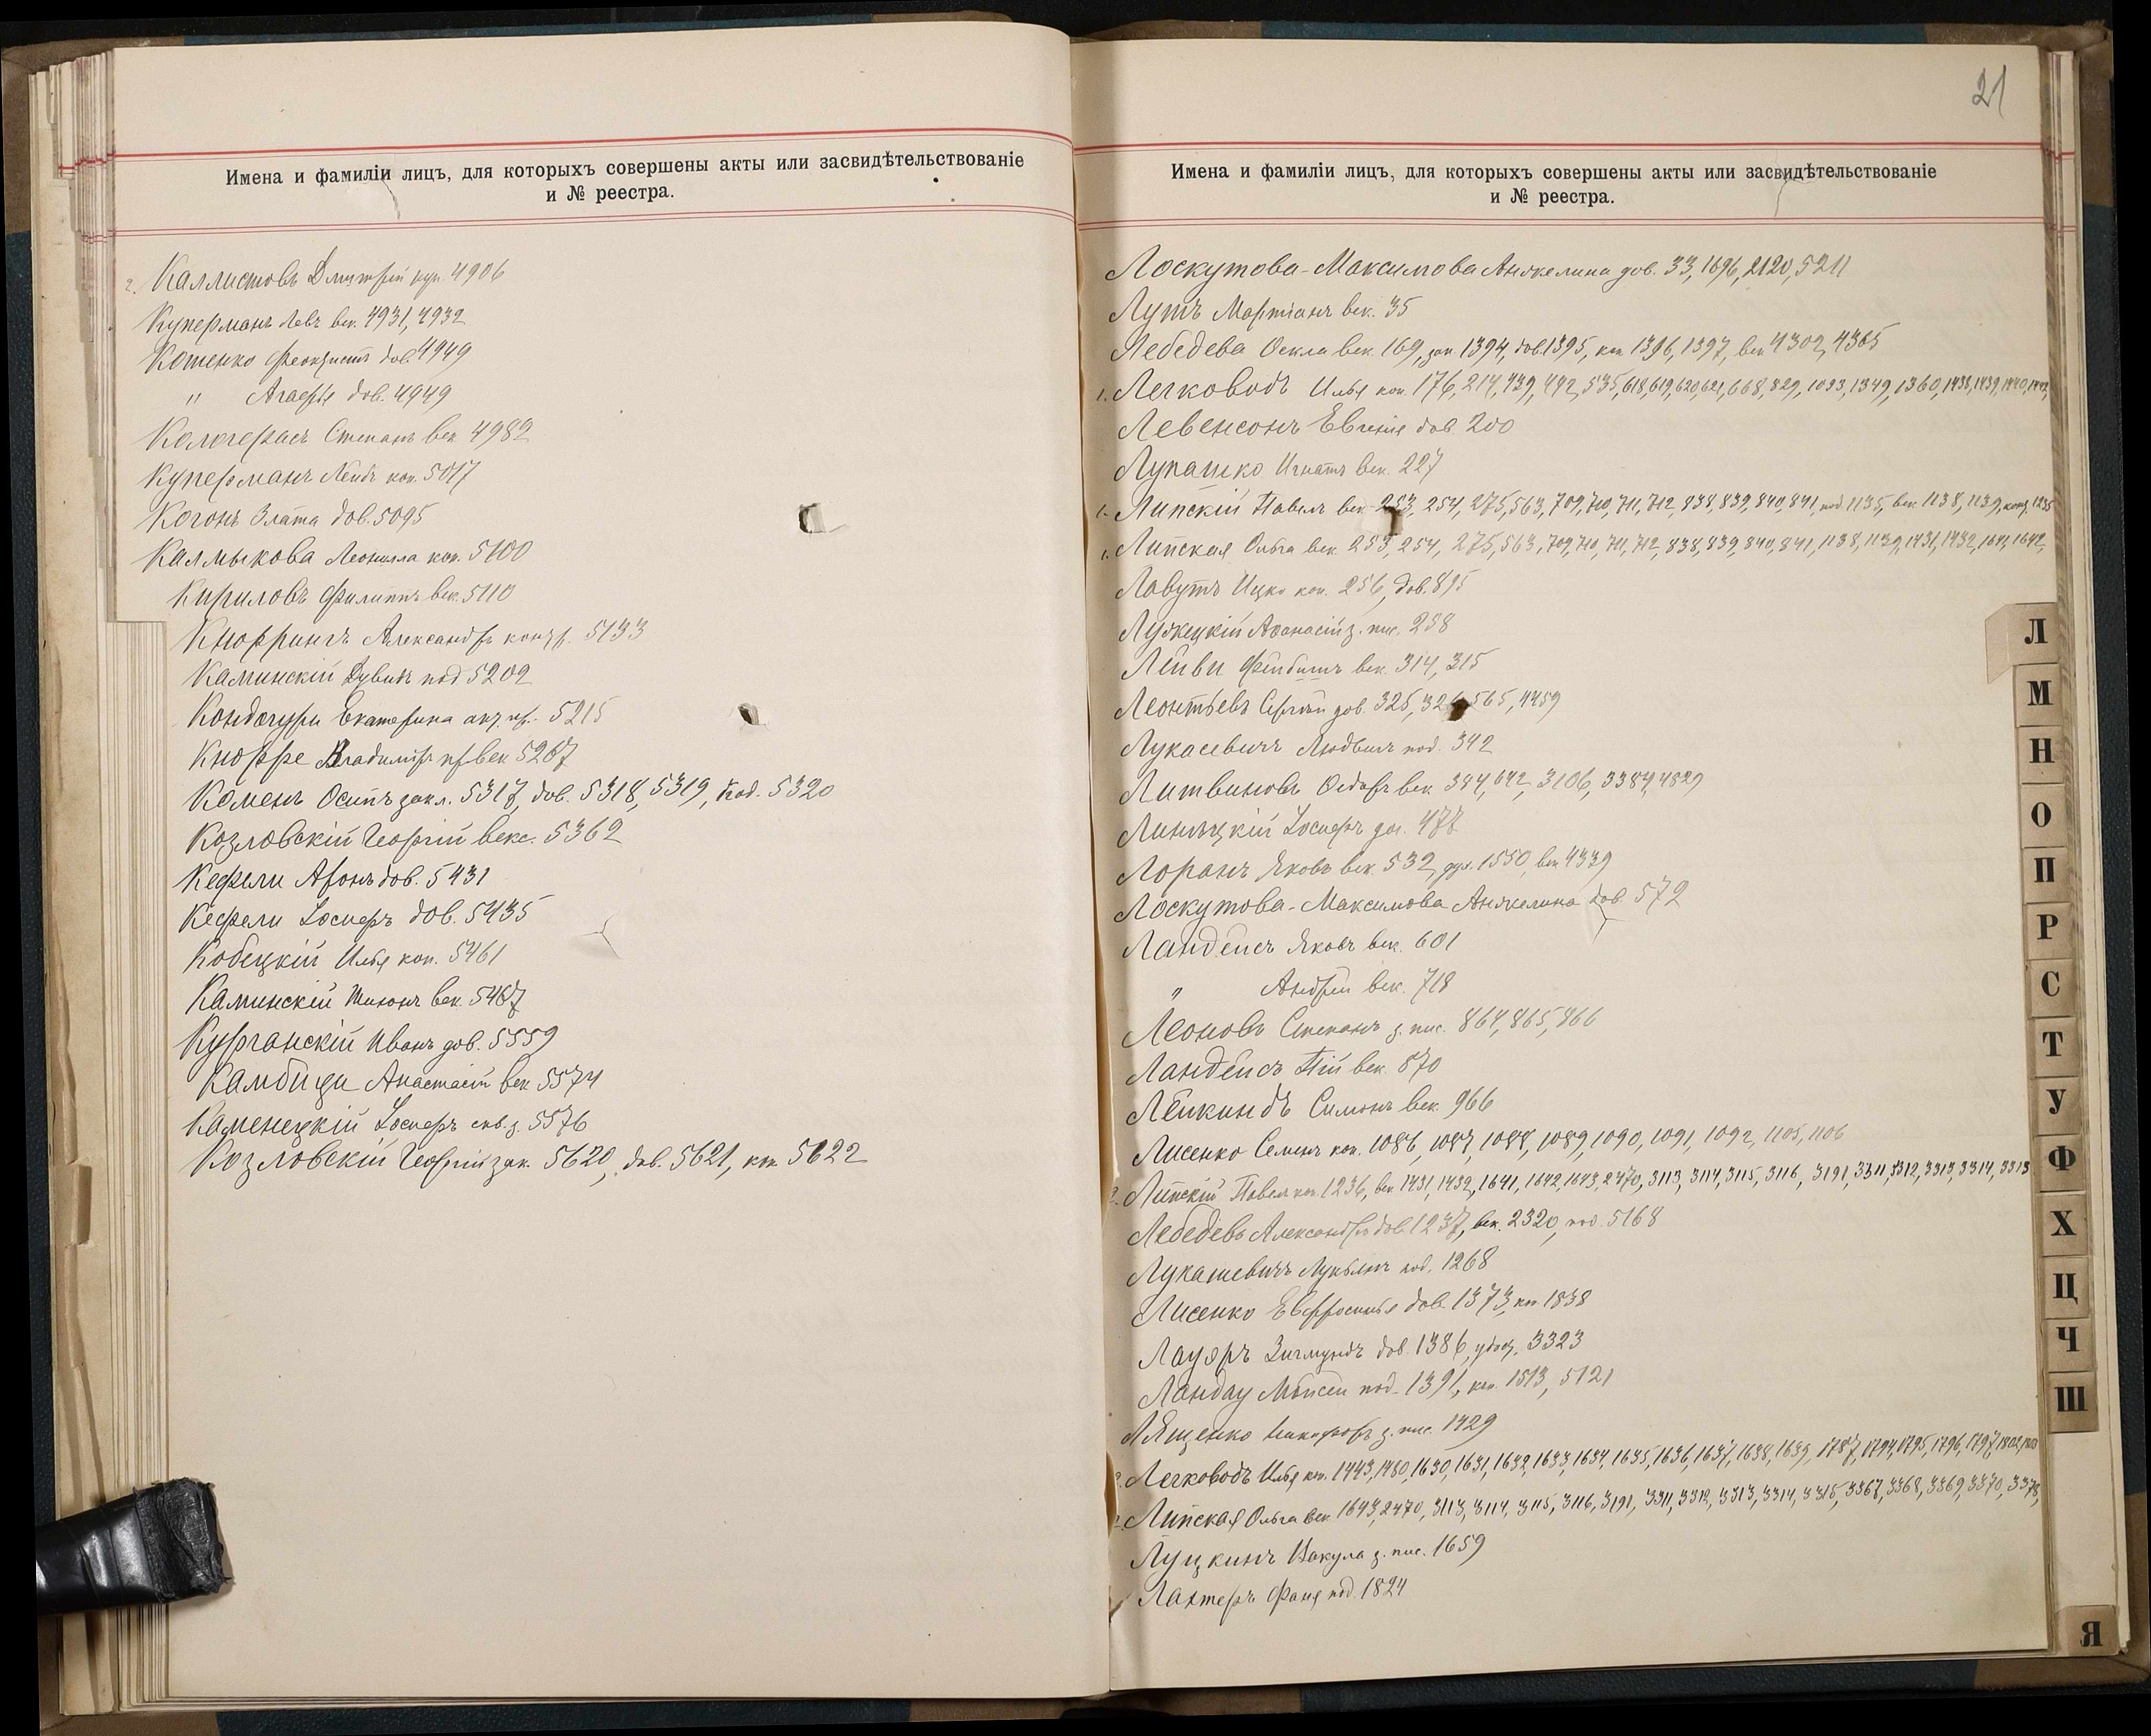 Имена и фамиліи лицъ, для которыхъ совершены акты или засвидѣтельствованіе
и № реестра.
2. Каллистовъ Дмитрій куп. 4906
Куперманъ Левъ век. 4931, 4932
Котенко Феоктистъ дов. 4949
" Агафья дов. 4949
Степанъ век. 4982
Куперманъ Лейбъ коп. 5017
Когонъ Злата дов. 5095
Калмыкова Леонилла коп. 5100
Кириловъ Филиппъ век. 5110
Кноррингъ Александръ 5133
Каминскій Дувидъ под 5202
Кондогури Екатерина 5215
Кнорре Владиміръ век 5267
Коменъ Осипъ закл. 5317, дов. 5318, 5319, под. 5320
Козловскій Георгій векс. 5362
Кефели Аронъ дов. 5431
Кефели Іосифъ дов. 5435
Кобецкій Илья коп. 5461
Каминскій Шимонъ век. 5467
Курганскій Иванъ дов. 5559
Камбици Анастасій век 5574
Каменецкій Іосифъ 5576
Козловскій Георгій зак. 5620, дов. 5621, коп. 5622
21
Имена и фамиліи лицъ, для которыхъ совершены акты или засвидѣтельствованіе
и № реестра.
Лоскутова-Максимова Анжелина дов. 33, 1696, 2120, 5211
Лутъ Мартіанъ век. 35
Лебедева Фекла век. 169, зак 1394, дов. 1395, коп 1396, 1397, век 4302, 4365
1. Легководъ Илья коп. 176, 214, 439, 492, 535, 618, 619, 620, 621, 668, 829, 1093, 1349, 1360, 1438, 1439, 1440, 1442,
Левенсонъ Евгенія дов. 200
Лупашко Игнатъ век. 227
1. Липскій Павелъ век. 253, 254, 275, 563, 709, 710, 711, 712, 838, 839, 840, 841, под 1135, век 1138, 1139, 1235
1. Липская Ольга век. 253, 254, 275, 563, 709, 710, 711, 712, 838, 839, 840, 841, 1138, 1139, 1431, 1432, 1641, 1642,
Лавутъ Ицко коп. 256, дов. 895
Лужецкій Афанасій з. пис. 258
Лейви Фейбишъ век. 314, 315
Леонтьевъ Сергѣй дов. 325, 326, 565, 4459
Лукасевичъ Людвигъ под. 342
Литвиновъ Федоръ век. 384, 642, 3106, 3384, 4829
Линицкій Іосифъ 478
Лоранъ Яковъ век. 532, 1550, век 4339
Лоскутова-Максимова Анжелина дов. 572
Ландейсъ Яковъ век. 601
" Андрей век. 718
Леоновъ Степанъ з. пис. 864, 865, 866
Ландейсъ Пій век. 870
Лейкиндъ Симонъ век. 966
Лисенко Семенъ коп. 1086, 1087, 1088, 1089, 1090, 1091, 1092, 1105, 1106
2. Липскій Павелъ коп. 1236, век 1431, 1432, 1641, 1642, 1643, 2470, 3113, 3114, 3115, 3116, 3191, 3311, 3312, 3313, 3314, 3315
Лебедевъ Александръ дов. 1237, век. 2320, под. 5168
Лукашевичъ Лукьянъ под. 1268
Лисенко Евфросинья дов. 1373, коп. 1838
Лауэръ Зигмундъ дов. 1386, удост. 3323
Ландау Мойсей под. 1391, коп. 1513, 5121
Лященко Никифоръ з. пис. 1429
2. Легководъ Илья коп. 1443, 1480, 1630, 1631, 1632, 1633, 1634, 1635, 1636, 1637, 1638, 1639, 1787, 1794, 1795, 1796, 1797, 1802,
2. Липская Ольга век. 1643, 2470, 3113, 3114, 3115, 3116, 3191, 3311, 3312, 3313, 3314, 3315, 3367, 3368, 3369, 3370, 3378,
Луцкинъ Вакула з. пис. 1659
Лахтеръ Фаня под. 1824
Л
М
Н
О
П
Р
С
Т
У
Ф
Х
Ц
Ч
Ш
Я